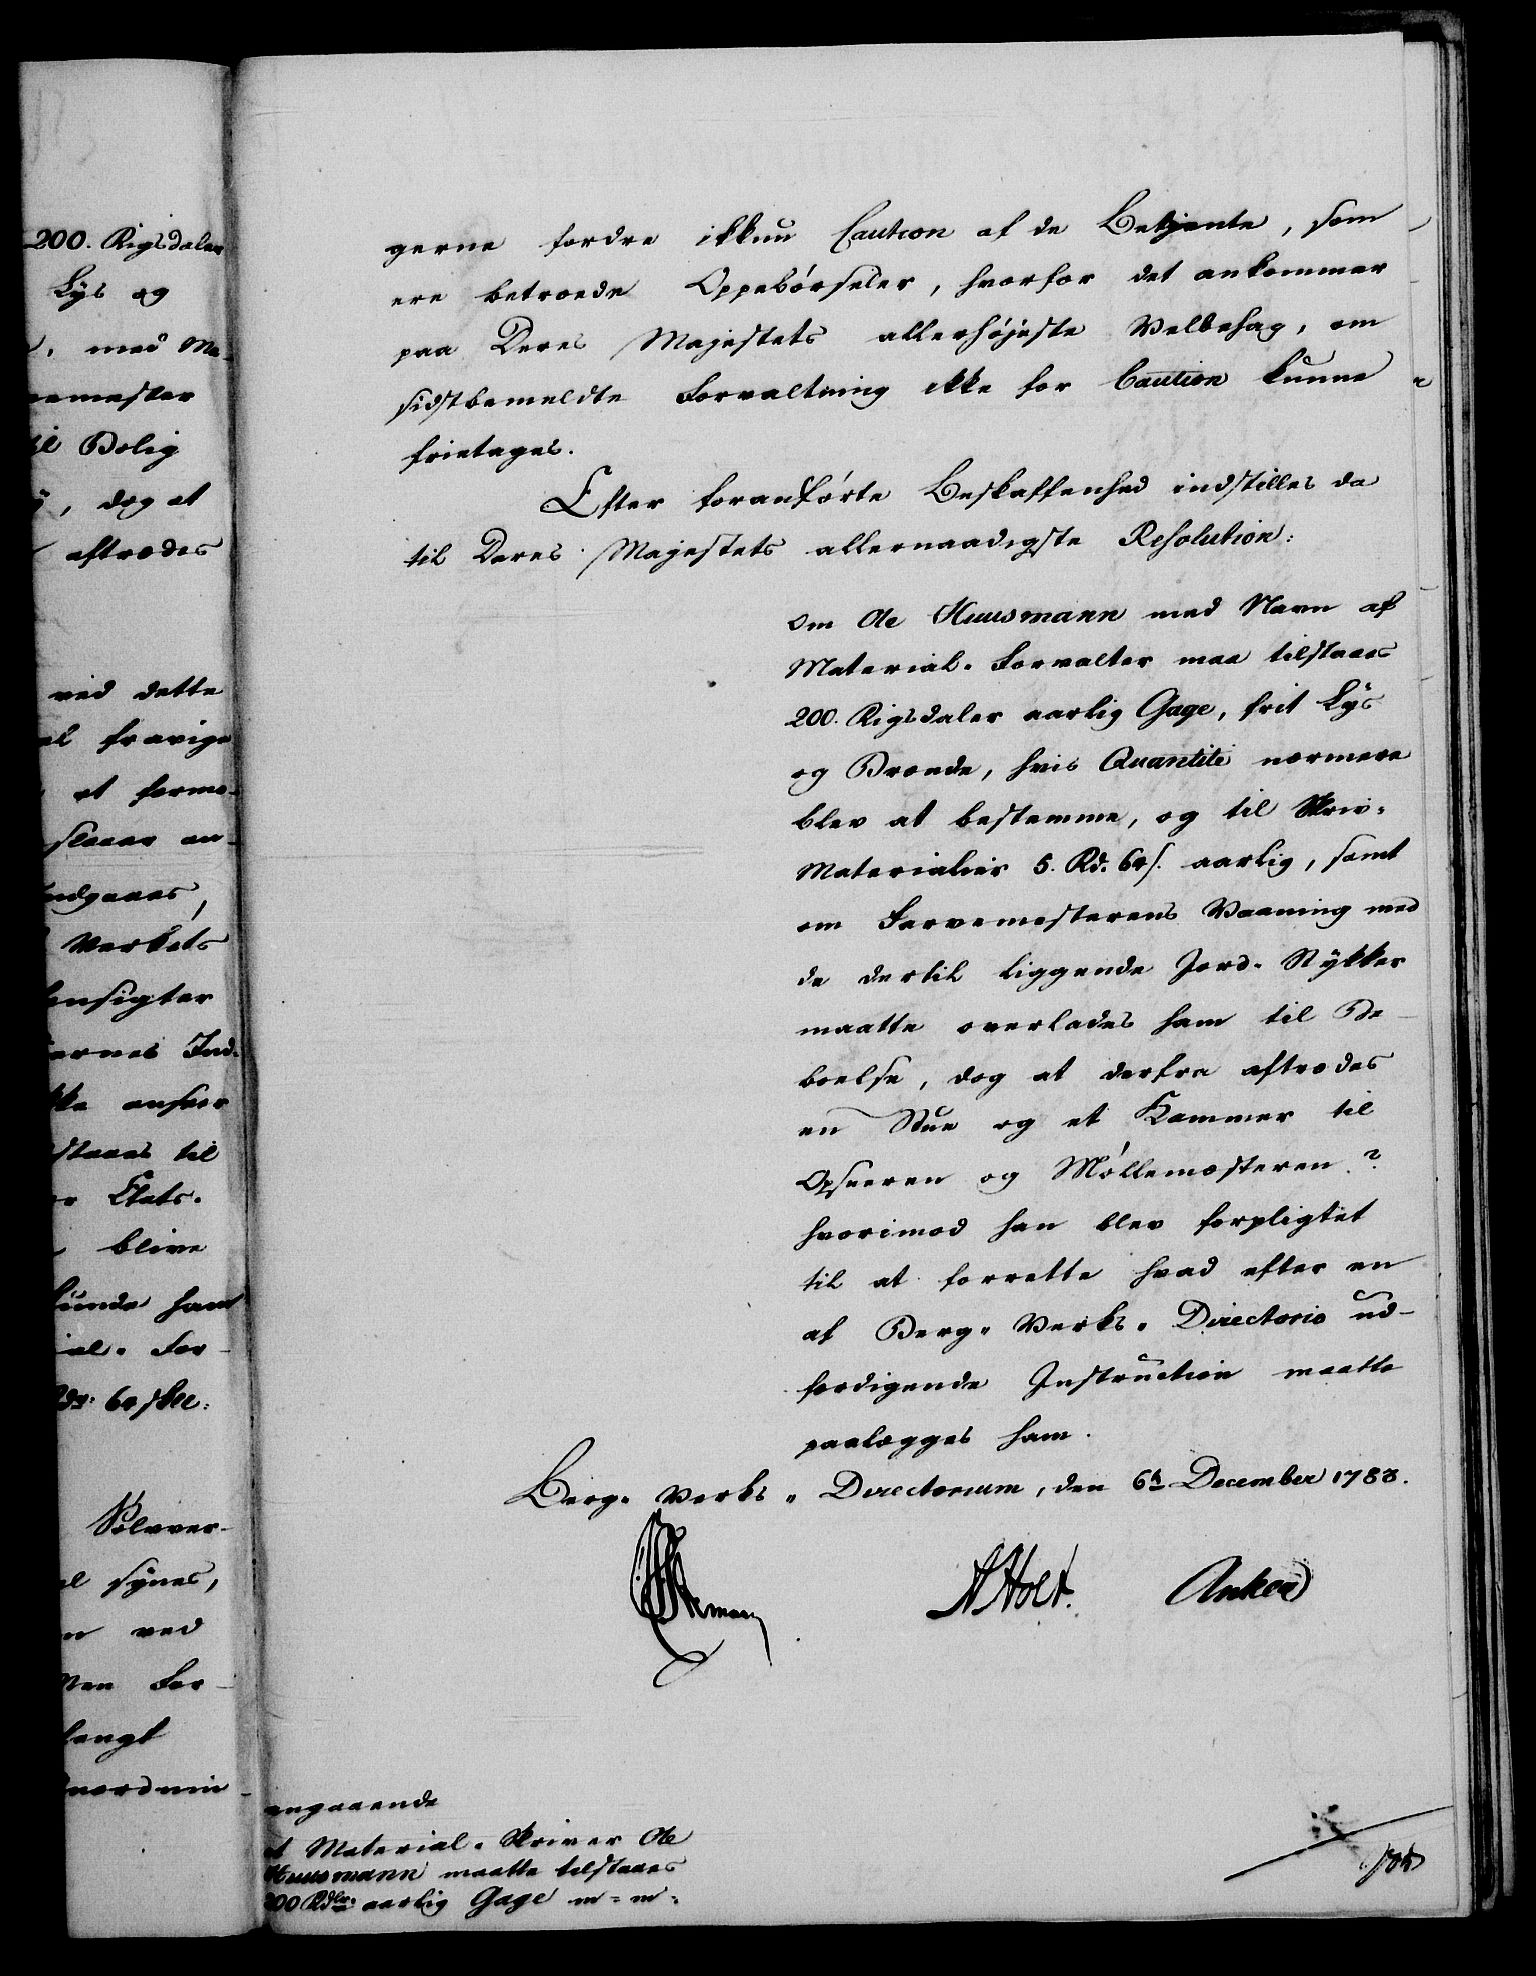 200. Rigsdaler
Lys og
med Ma-
mester
til Bolig
, dog at
aftrædes
ved dette
fravige
at forme-
slaaer an-
indgaaes,
Verkets
hensigter
ernes Ind-
ke anseer
staaes til
Etats-
blive
kunde ham
ial- For-
64 skl:
Sølvver-
synes,
ved
For-
langt
nordnin-
gerne fordre ikkun Caution af de Betjente, som
ere betroede Oppebørseler, hvorfor det ankommer
paa Deres Majestets allerhøjeste Velbehag, om
sidstbemeldte Forvaltning ikke for Caution kunne
frietages.
Efter foranførte Beskaffenhed indstilles da
til Deres Majestets allernaadigste Resolution:
om Ole Huusmann med Navn af
Material-Forvalter maa tilstaaes
200. Rigsdaler aarlig Gage, frit Lys
og Brænde, hvis Quantité nærmere
blev at bestemme, og til Skriv-
Materialier 5. Rd. 64 s. aarlig, samt
om Farvemesterens Vaaning med
de dertil liggende Jord-Stykker
maatte overlades ham til Be-
boelse, dog at derfra aftrædes
en Stue og et Kammer til
Opseeren og Møllemesteren?
hvorimod han blev forpligtet
til at forrette hvad efter en
af Berg-Verks-Directorio ud-
færdigende Instruction maatte
paalægges ham.
Berg-Verks-Directorium, den 6te December 1788.
AHolt. Anker
angaaende
at Material-Skriver Ole
Huusmann maatte tilstaaes
200 Rdlr. aarlig Gage m=m: